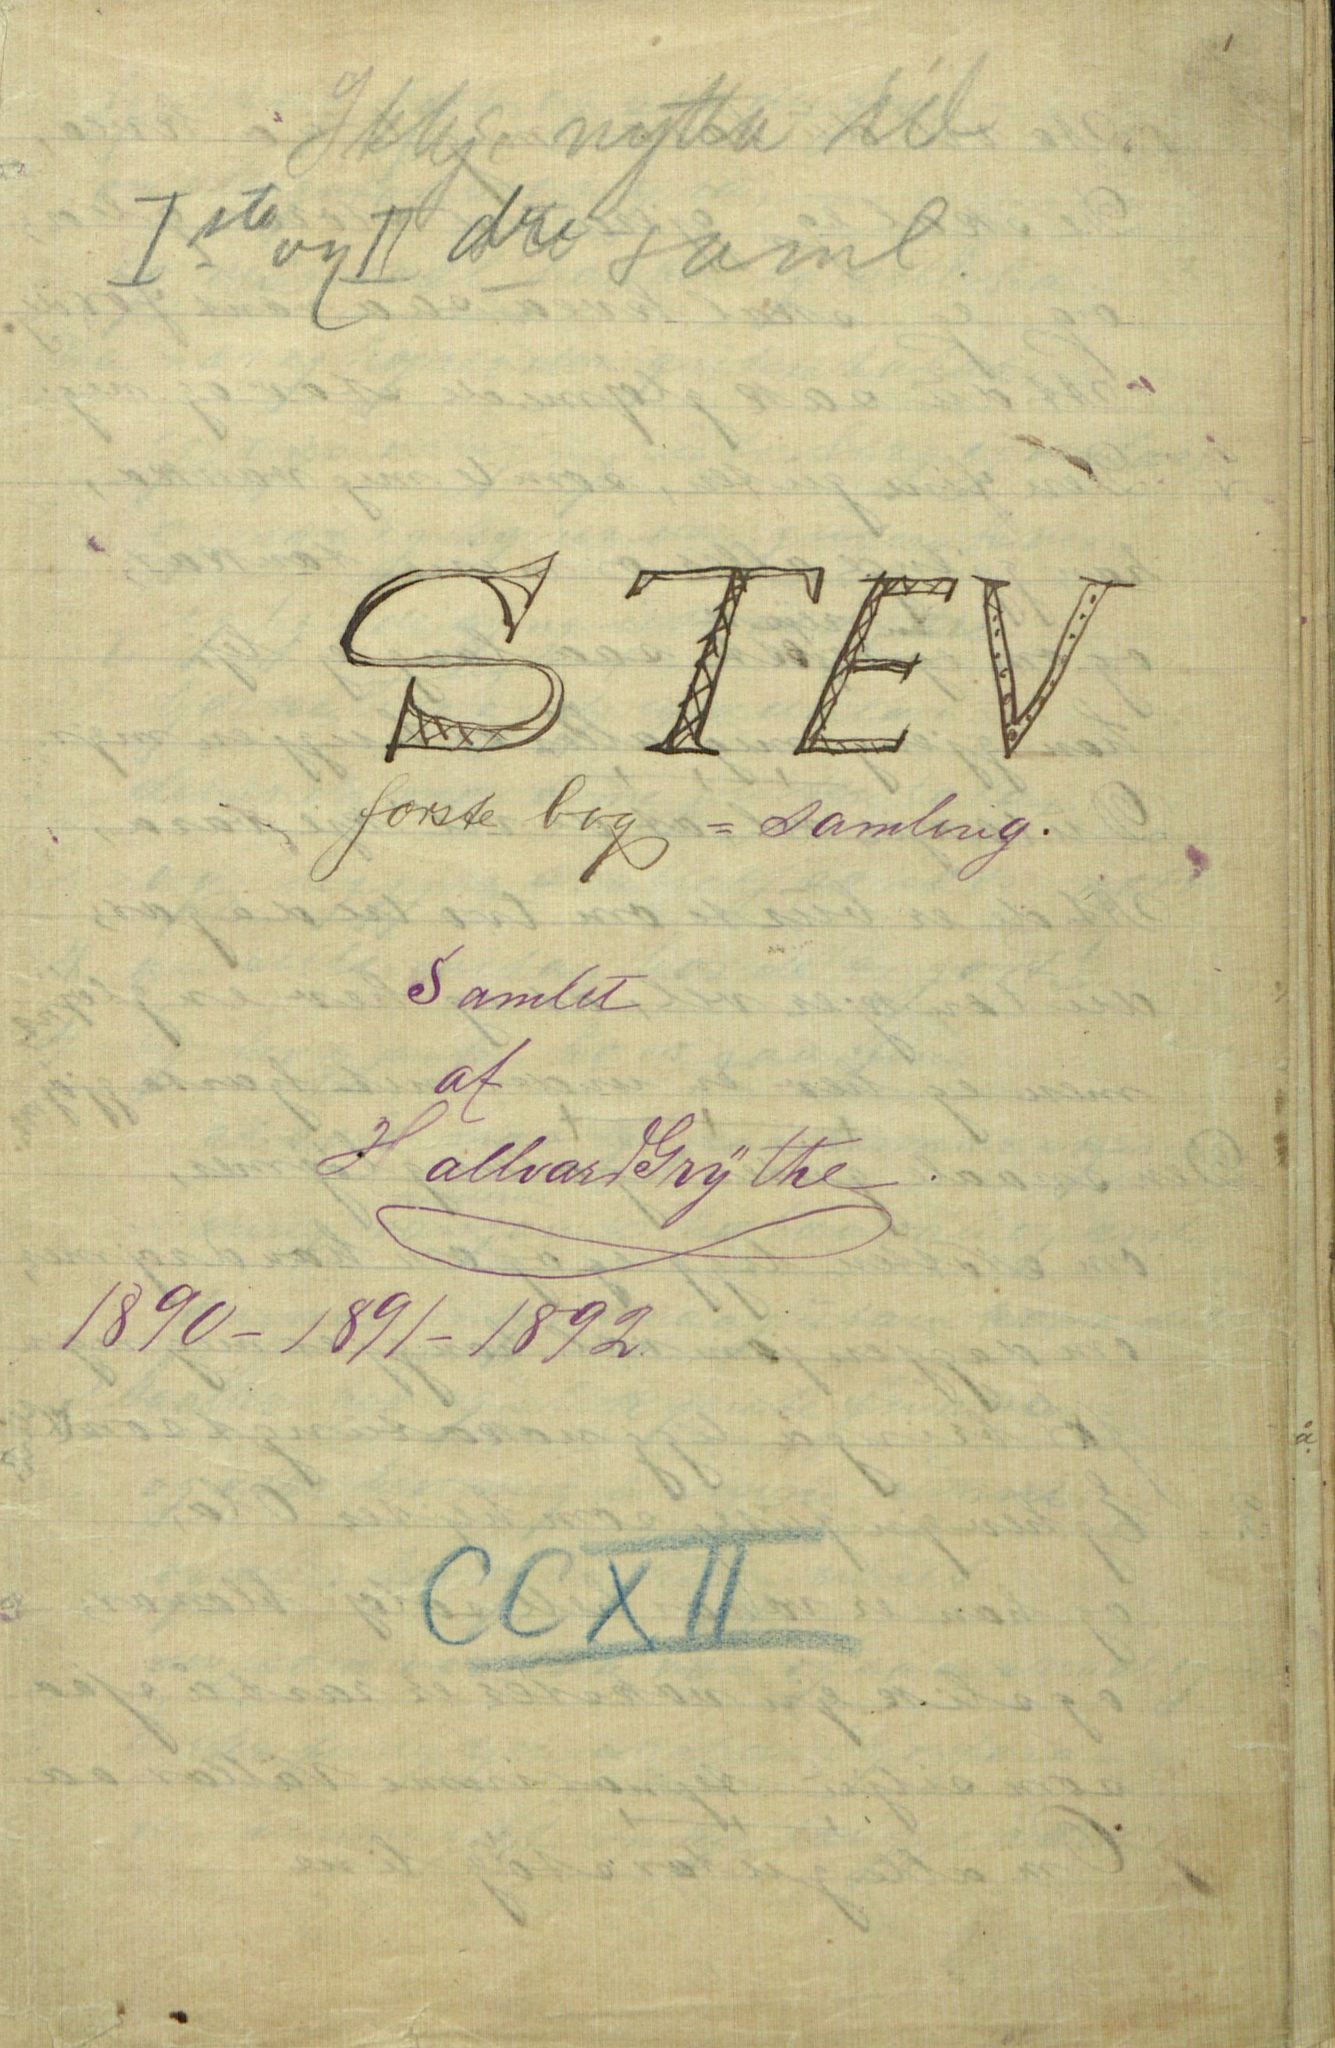 1
Ikkj. nytta til
Iste og II dre saml.
STEV
første bog = samling.
Samlet
af
Hallvard Grÿthe.
1890 - 1891 - 1892.
CCXII